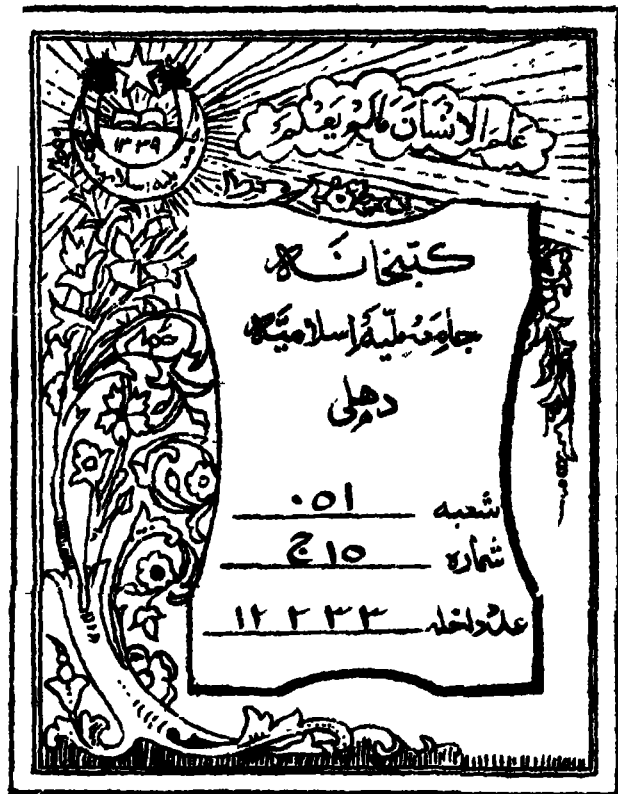 علم الانسان مالم يعلم
۱۳۳۹
کتبخانہ
جامعہ ملیہ اسلامیہ
دھلی
شعبہ ۰۵۱
شمارہ ۱۵ ج
عدد داخلہ